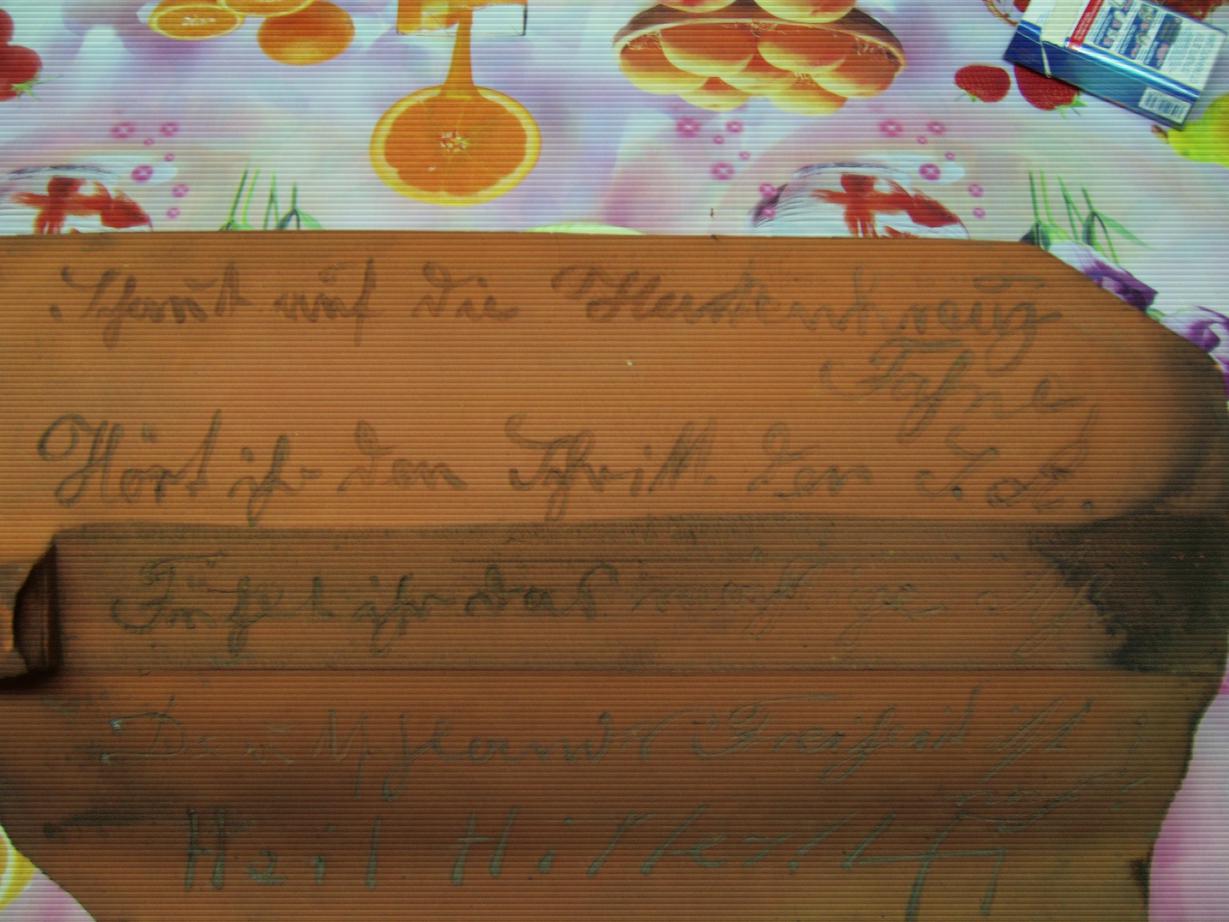 Schaut auf die Hackenkreuz
Fahne,
Hört ihr den Schritt der S.A.
Fühlt ihr das
Deutschlands Freiheit ist
Heil Hitler!